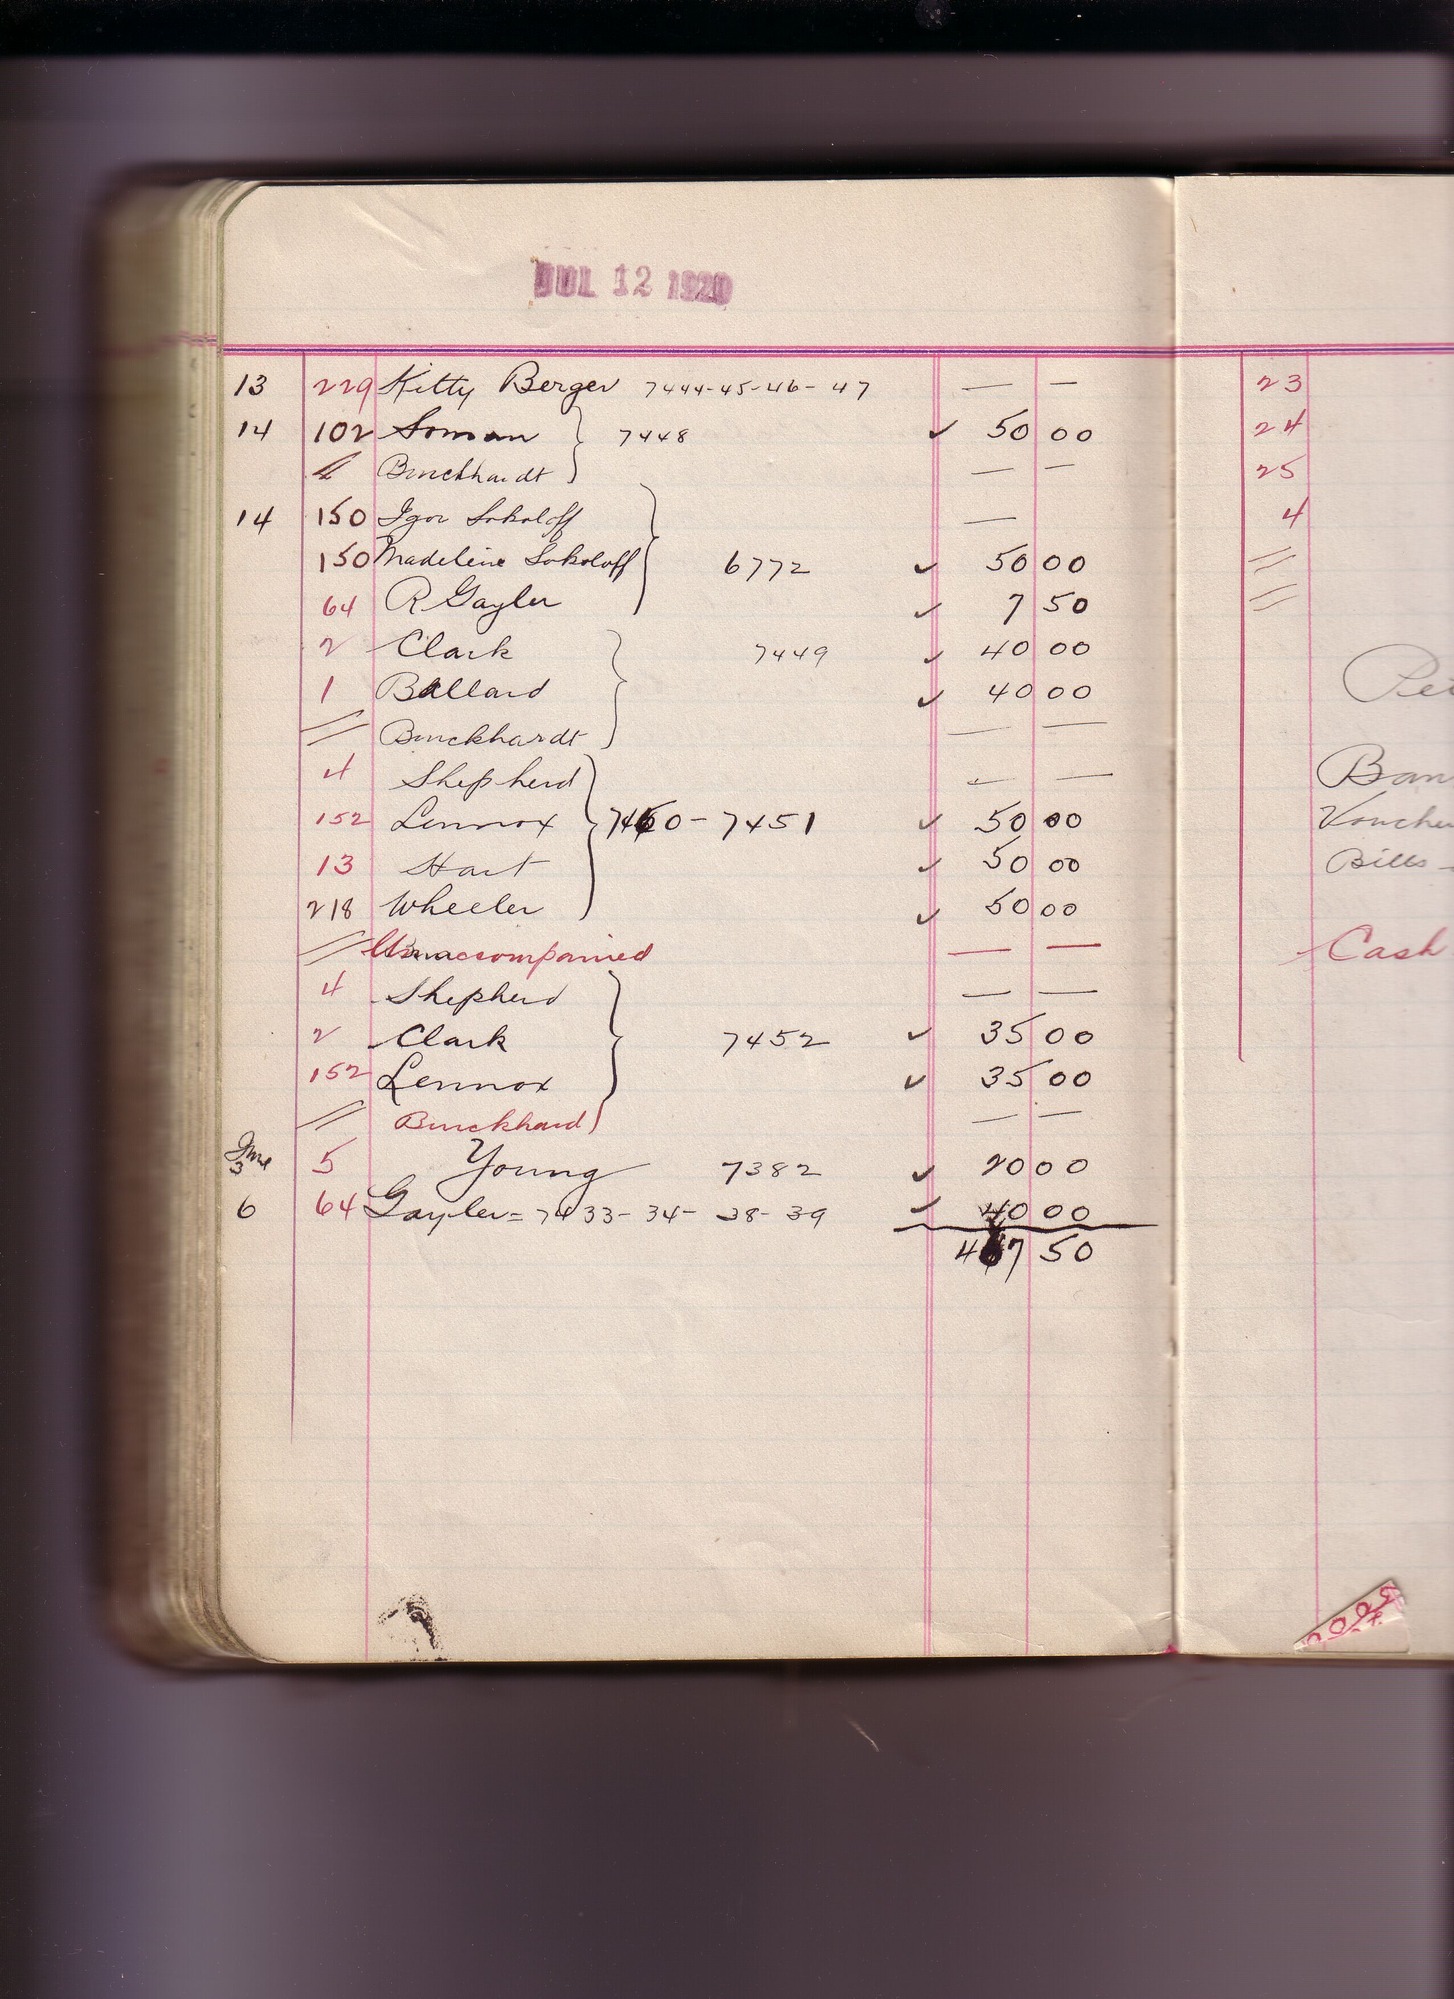 JUL 12 1920
13 229 Kitty Berger 7444-45-46-47 — —
14 102 Soman } 7448 ✓ 50 00
4 Burckhardt — —
14 150 Igor Sokoloff —
150 Madeline Sokoloff } 6772 ✓ 50 00
64 R Gayler ✓ 7 50
2 Clark 7449 ✓ 40 00
1 Ballard } ✓ 40 00
// Burckhardt — —
4 Shepherd — —
152 Lennox } 7450 - 7451 ✓ 50 00
13 Hart ✓ 50 00
218 Wheeler ✓ 50 00
// Unaccompanied — —
4 Shepherd — —
2 Clark } 7452 ✓ 35 00
152 Lennox ✓ 35 00
// Burckhard — —
June 3 5 Young 7382 ✓ 20 00
6 64 Gayler = 7433-34-38-39 ✓ 40 00
467 50
23
24
25
4
//
//
Pet
Ban
Vouche
Bills -
Cash